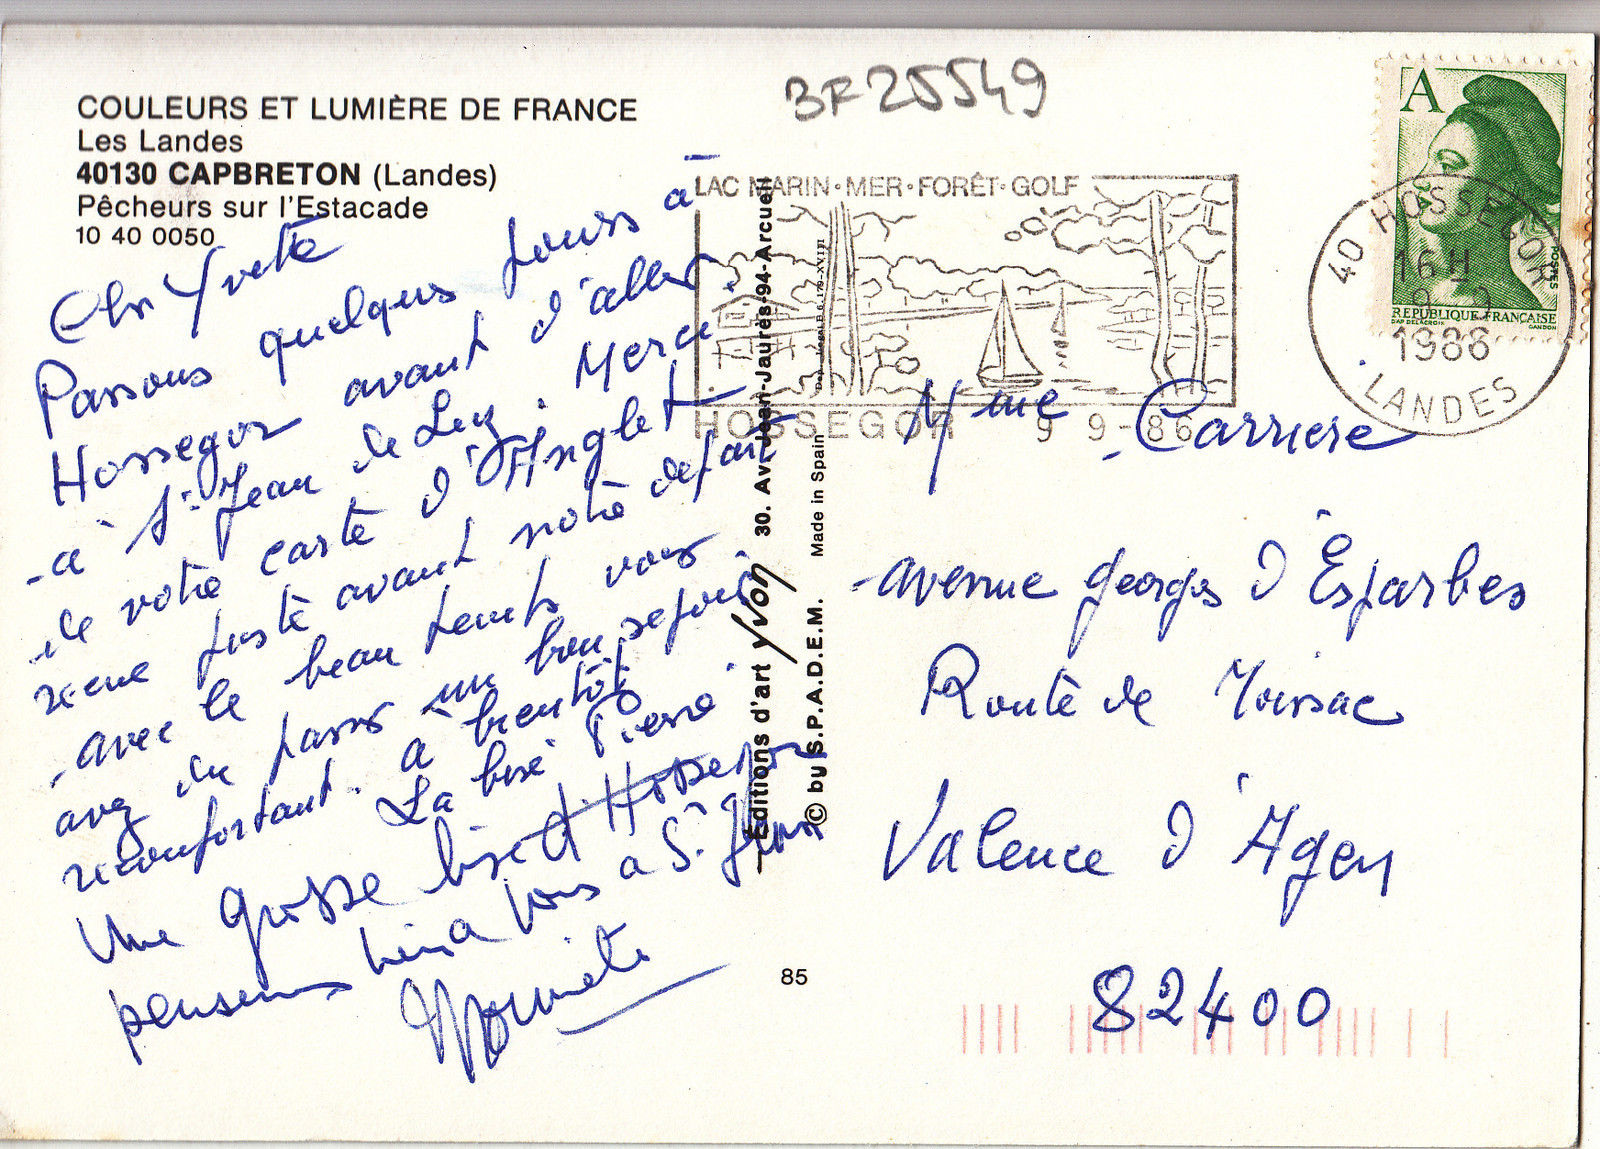 BF 25549
COULEURS ET LUMIÈRE DE FRANCE
Les Landes
40130 CAPBRETON (Landes)
Pêcheurs sur l'Estacade
10 40 0050
Chr Yvette
Passons quelques jours à
Hossegor avant d'aller
à St Jean de Luz. Merci
de votre carte d'Anglet
reçue juste avant notre départ
avec le beau temps vous
avez du passer un bon séjour
réconfortant. à bientôt
La bise Pierre
Une grosse bise d'Hossegor
penserons bien à vous à St Jean
LAC MARIN·MER·FORÊT·GOLF
HOSSEGOR 9 9-86
A
POSTES
REPUBLIQUE FRANÇAISE
DAP DELACROIX GANDON
40 HOSSEGOR
16H
9-9
1986
LANDES
Editions d'art yvon 30. Av. Jean-Jaurès-94-Arcueil
© by S.P.A.D.E.M. Made in Spain
Mme Carrière
avenue Georges d'Esparbès
Route de Moissac
Valence d'Agen
82400
85